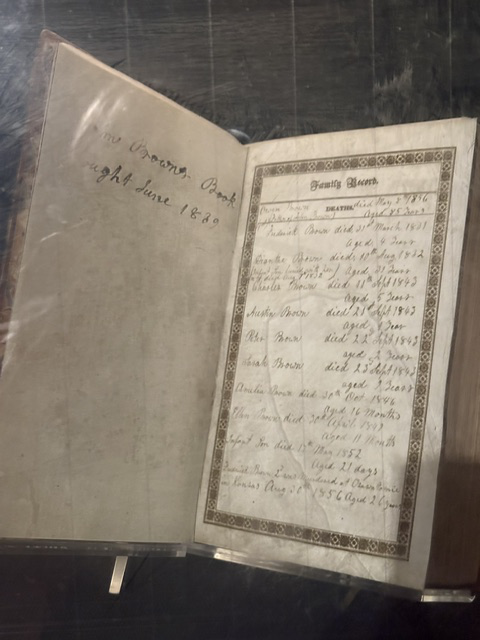 Brown's Book
ught June 1839
Family Record.
DEATHS.
died May 8th 1856
Aged 85 Years
Fredrick Brown died 31st March 1831
Aged 4 Years
Dianthe Brown died 10th Aug 1832
Aged 31 Years
Charles Brown died 11th Sept 1843
aged 5 Years
Austin Brown died 21st Sept 1843
aged 1 Year
Peter Brown died 22 Sept 1843
aged 2 Years
Sarah Brown died 23 Sept 1843
aged 9 Years
Amelia Brown died 30th Oct 1846
Aged 16 Months
Ellen Brown died 30th April 1849
Aged 11 Month
Infant Son died 17th May 1852
Aged 21 days
Fredrick Brown 2 murdered at Osawatomie
in Kansas Aug 30th 1856 Aged 26 Years